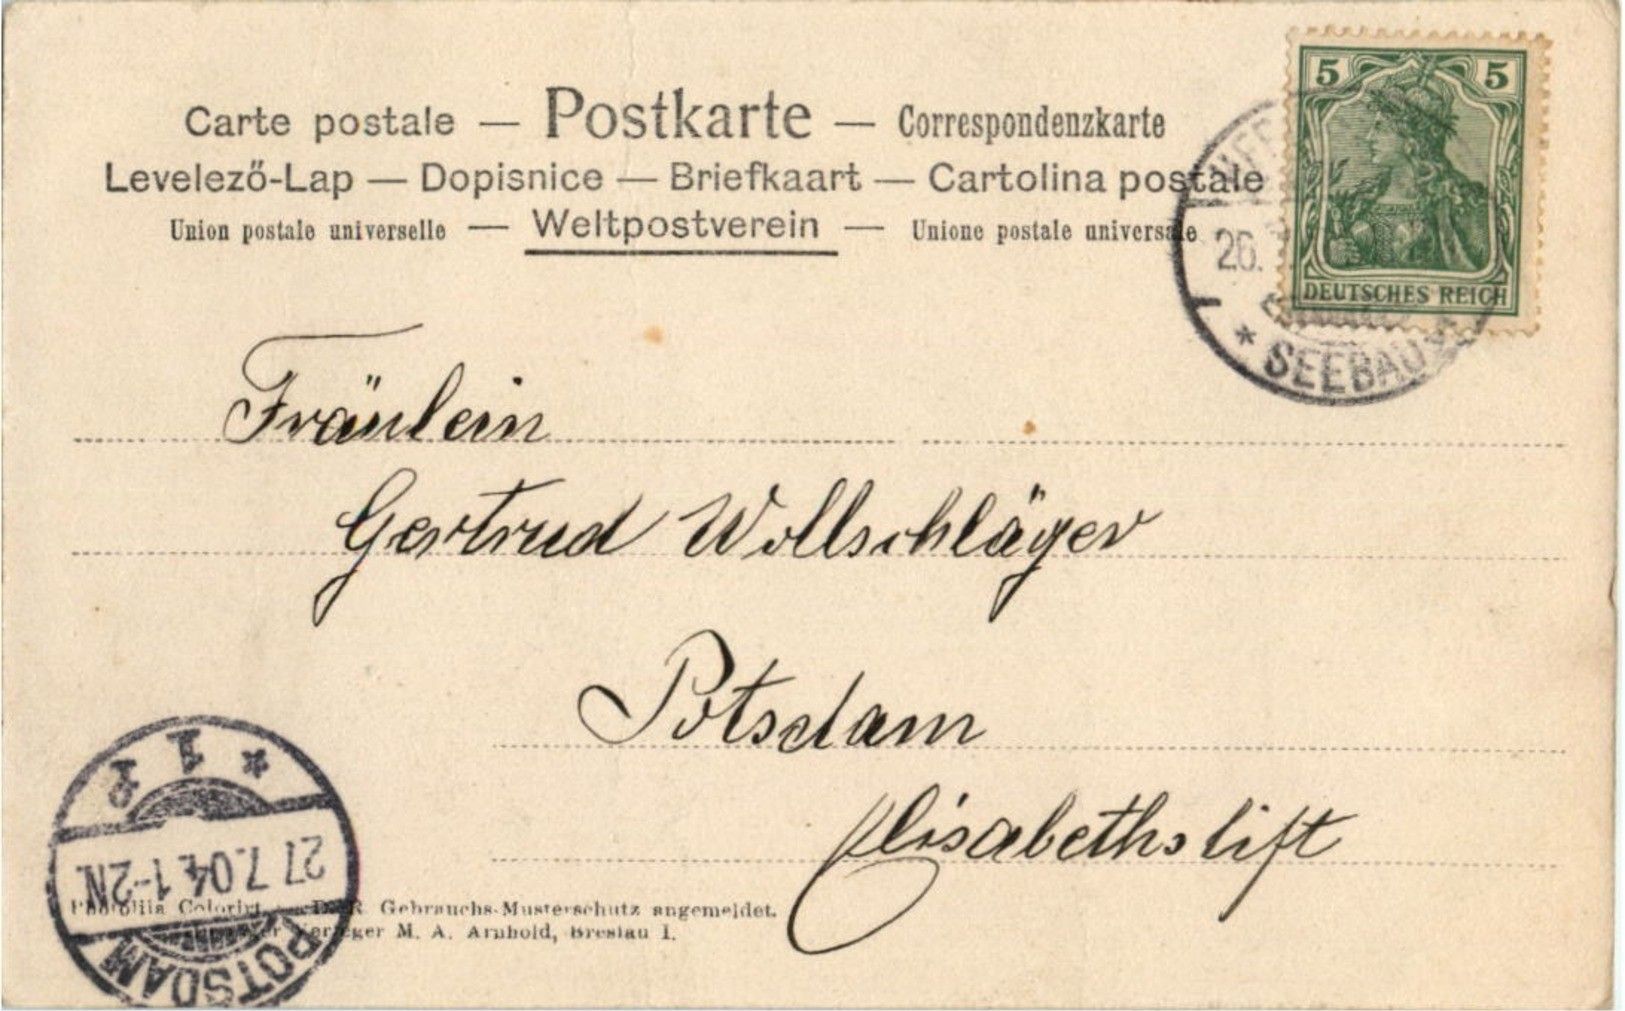 Carte postale — Postkarte — Correspondenzkarte
Levelező-Lap — Dopisnice — Briefkaart — Cartolina postale
Union postale universelle — Weltpostverein — Unione postale universale
5 5
DEUTSCHES REICH
26.
* SEEBAD *
Fräulein
Gertrud Wollschläger
Potsdam
Elisabethstift
* 1
27.7.04.1-2N.
POTSDAM
Colorirt. D. R. Gebrauchs-Musterschutz angemeldet.
Verleger M. A. Arnhold, Breslau I.